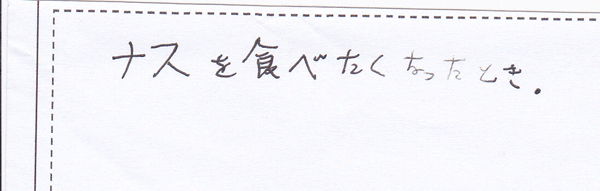 ナスを食べたくなったとき.